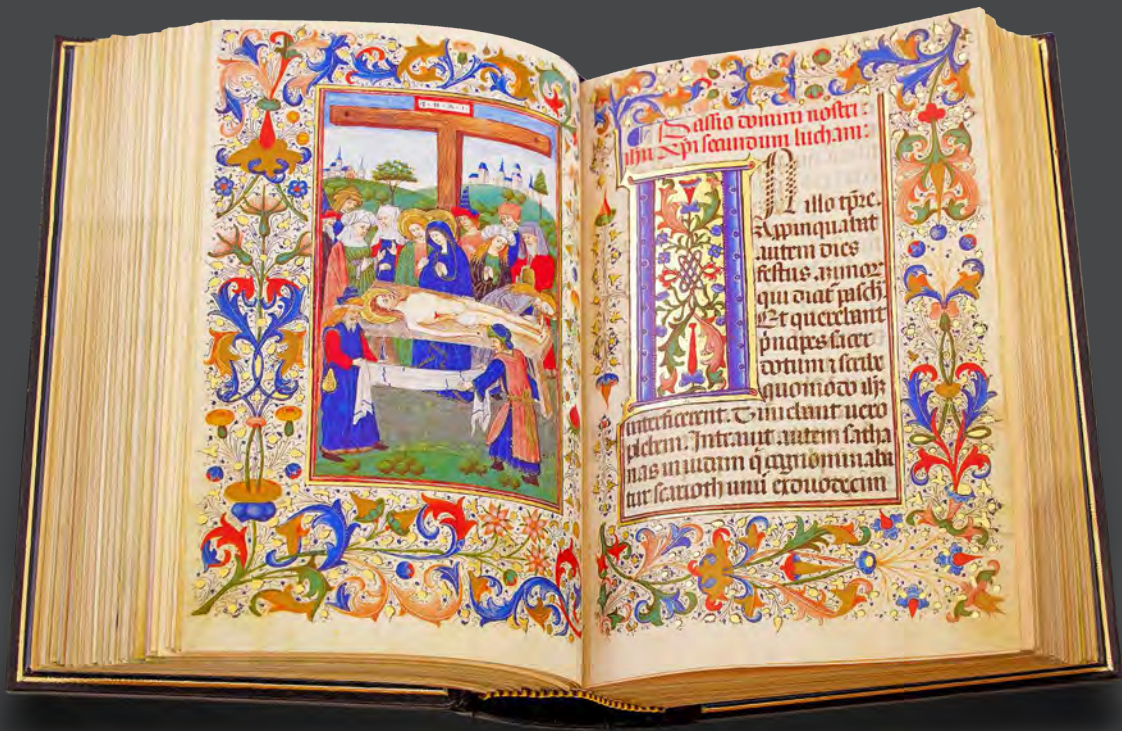 I·N·R·I
Passio domini nostri
ihu xpi secundum lucham:
IN illo tpre.
Appinquabat
autem dies
festus azimoꝝ
qui dicit pasch.
Et querebant
pncipes sacer
dotum ⁊ scribe
quomodo ihm
interficerent. Timebant uero
plebem. Intrauit autem satha
nas in iudam q cognominaba
tur scarioth unū ex duodecim